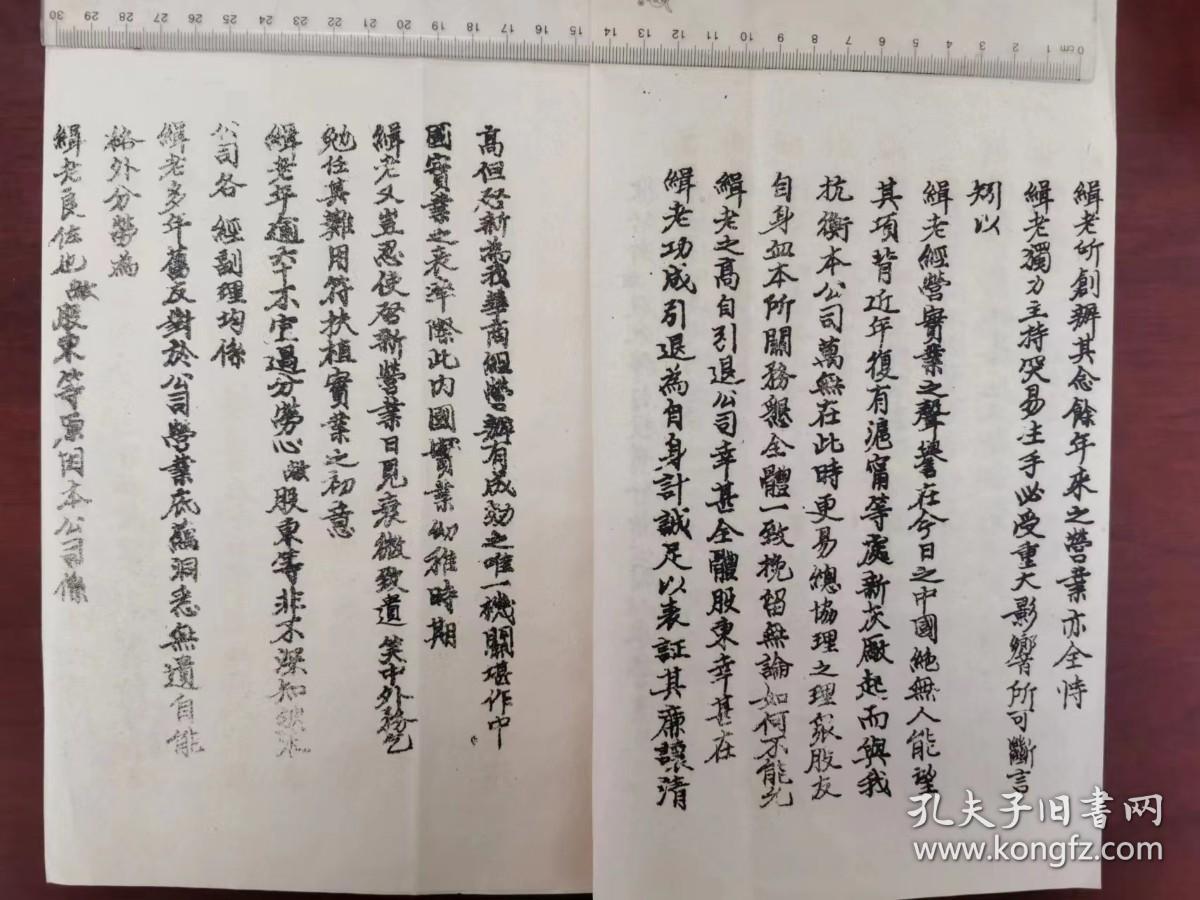 緝老所創辦其念餘年來之營業亦全恃
緝老獨力主持突易生手必受重大影響所可斷言
矧以
緝老經營實業之聲譽在今日之中國絕無人能望
其項背近年復有滬甯等處新灰廠起而與我
抗衡本公司萬無在此時更易總協理之理衆股友
自身血本所關務懇全體一致挽留無論如何不能允
緝老之高自引退公司幸甚全體股東幸甚在
緝老功成引退為自身計誠足以表証其廉讓清
高但恐新為我華商經營辦有成効之唯一機關堪作中
國實業之表率際此內國實業幼稚時期
緝老又豈忍使啓新營業日見衰微致遺笑中外務乞
勉任其難用符扶植實業之初意
緝老年逾六十不宜過分勞心敝股東等非不深知
公司各 經副理均係
緝老多年舊友對於公司營業底蘊洞悉無遺自能
格外分勞為
緝老良佐也敝股東等原因本公司係
0 cm 1 2 3 4 5 6 7 8 9 10 11 12 13 14 15 16 17 18 19 20 21 22 23 24 25 26 27 28 29 30
孔夫子旧书网
www.kongfz.com